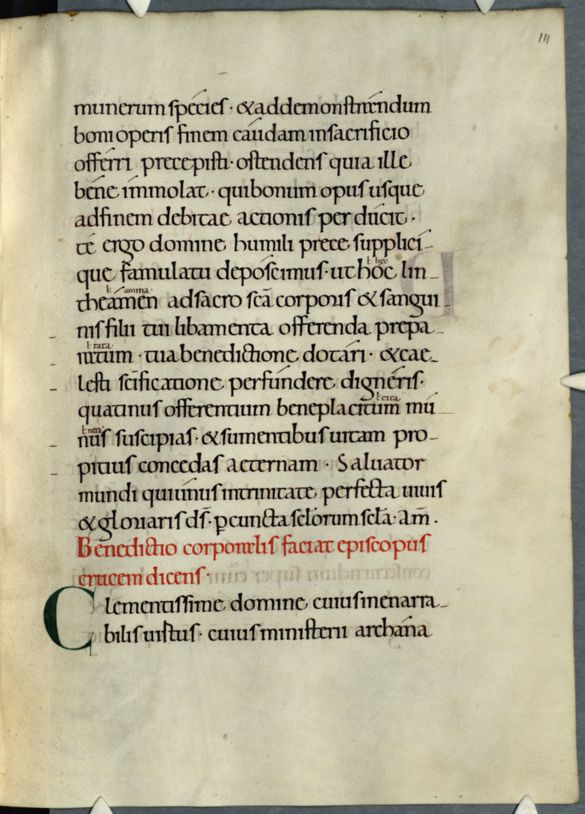 111
munerum species · & ad demonstrandum
boni operis finem caudam in sacrificio
offerri precepisti · ostendens quia ille
bene immolat · qui bonum opus usque
ad finem debitae actionis perducit ·
te ergo domine humili prece supplici-
que famulatu deposcimus · ut hoc lin-
theamen ad sacrosc̄a corporis & sangui
nis filii tui libamenta offerenda prepa
ratum · tua benedictione dotari · & cae-
lesti sc̄ificatione perfundere digneris ·
quatinus offerentium beneplacitum mu
nus suscipias · & sumentibus vitam pro-
pitius concedas aeternam · Salvator
mundi qui unus in trinitate perfecta vivis
& gloriaris d̄s · p cuncta sc̄lorum sc̄la · am̄ ·
Benedictio corporalis faciat episcopus
crucem dicens ·
Clementissime domine cuius inenarra-
bilis virtus · cuius ministerii archana